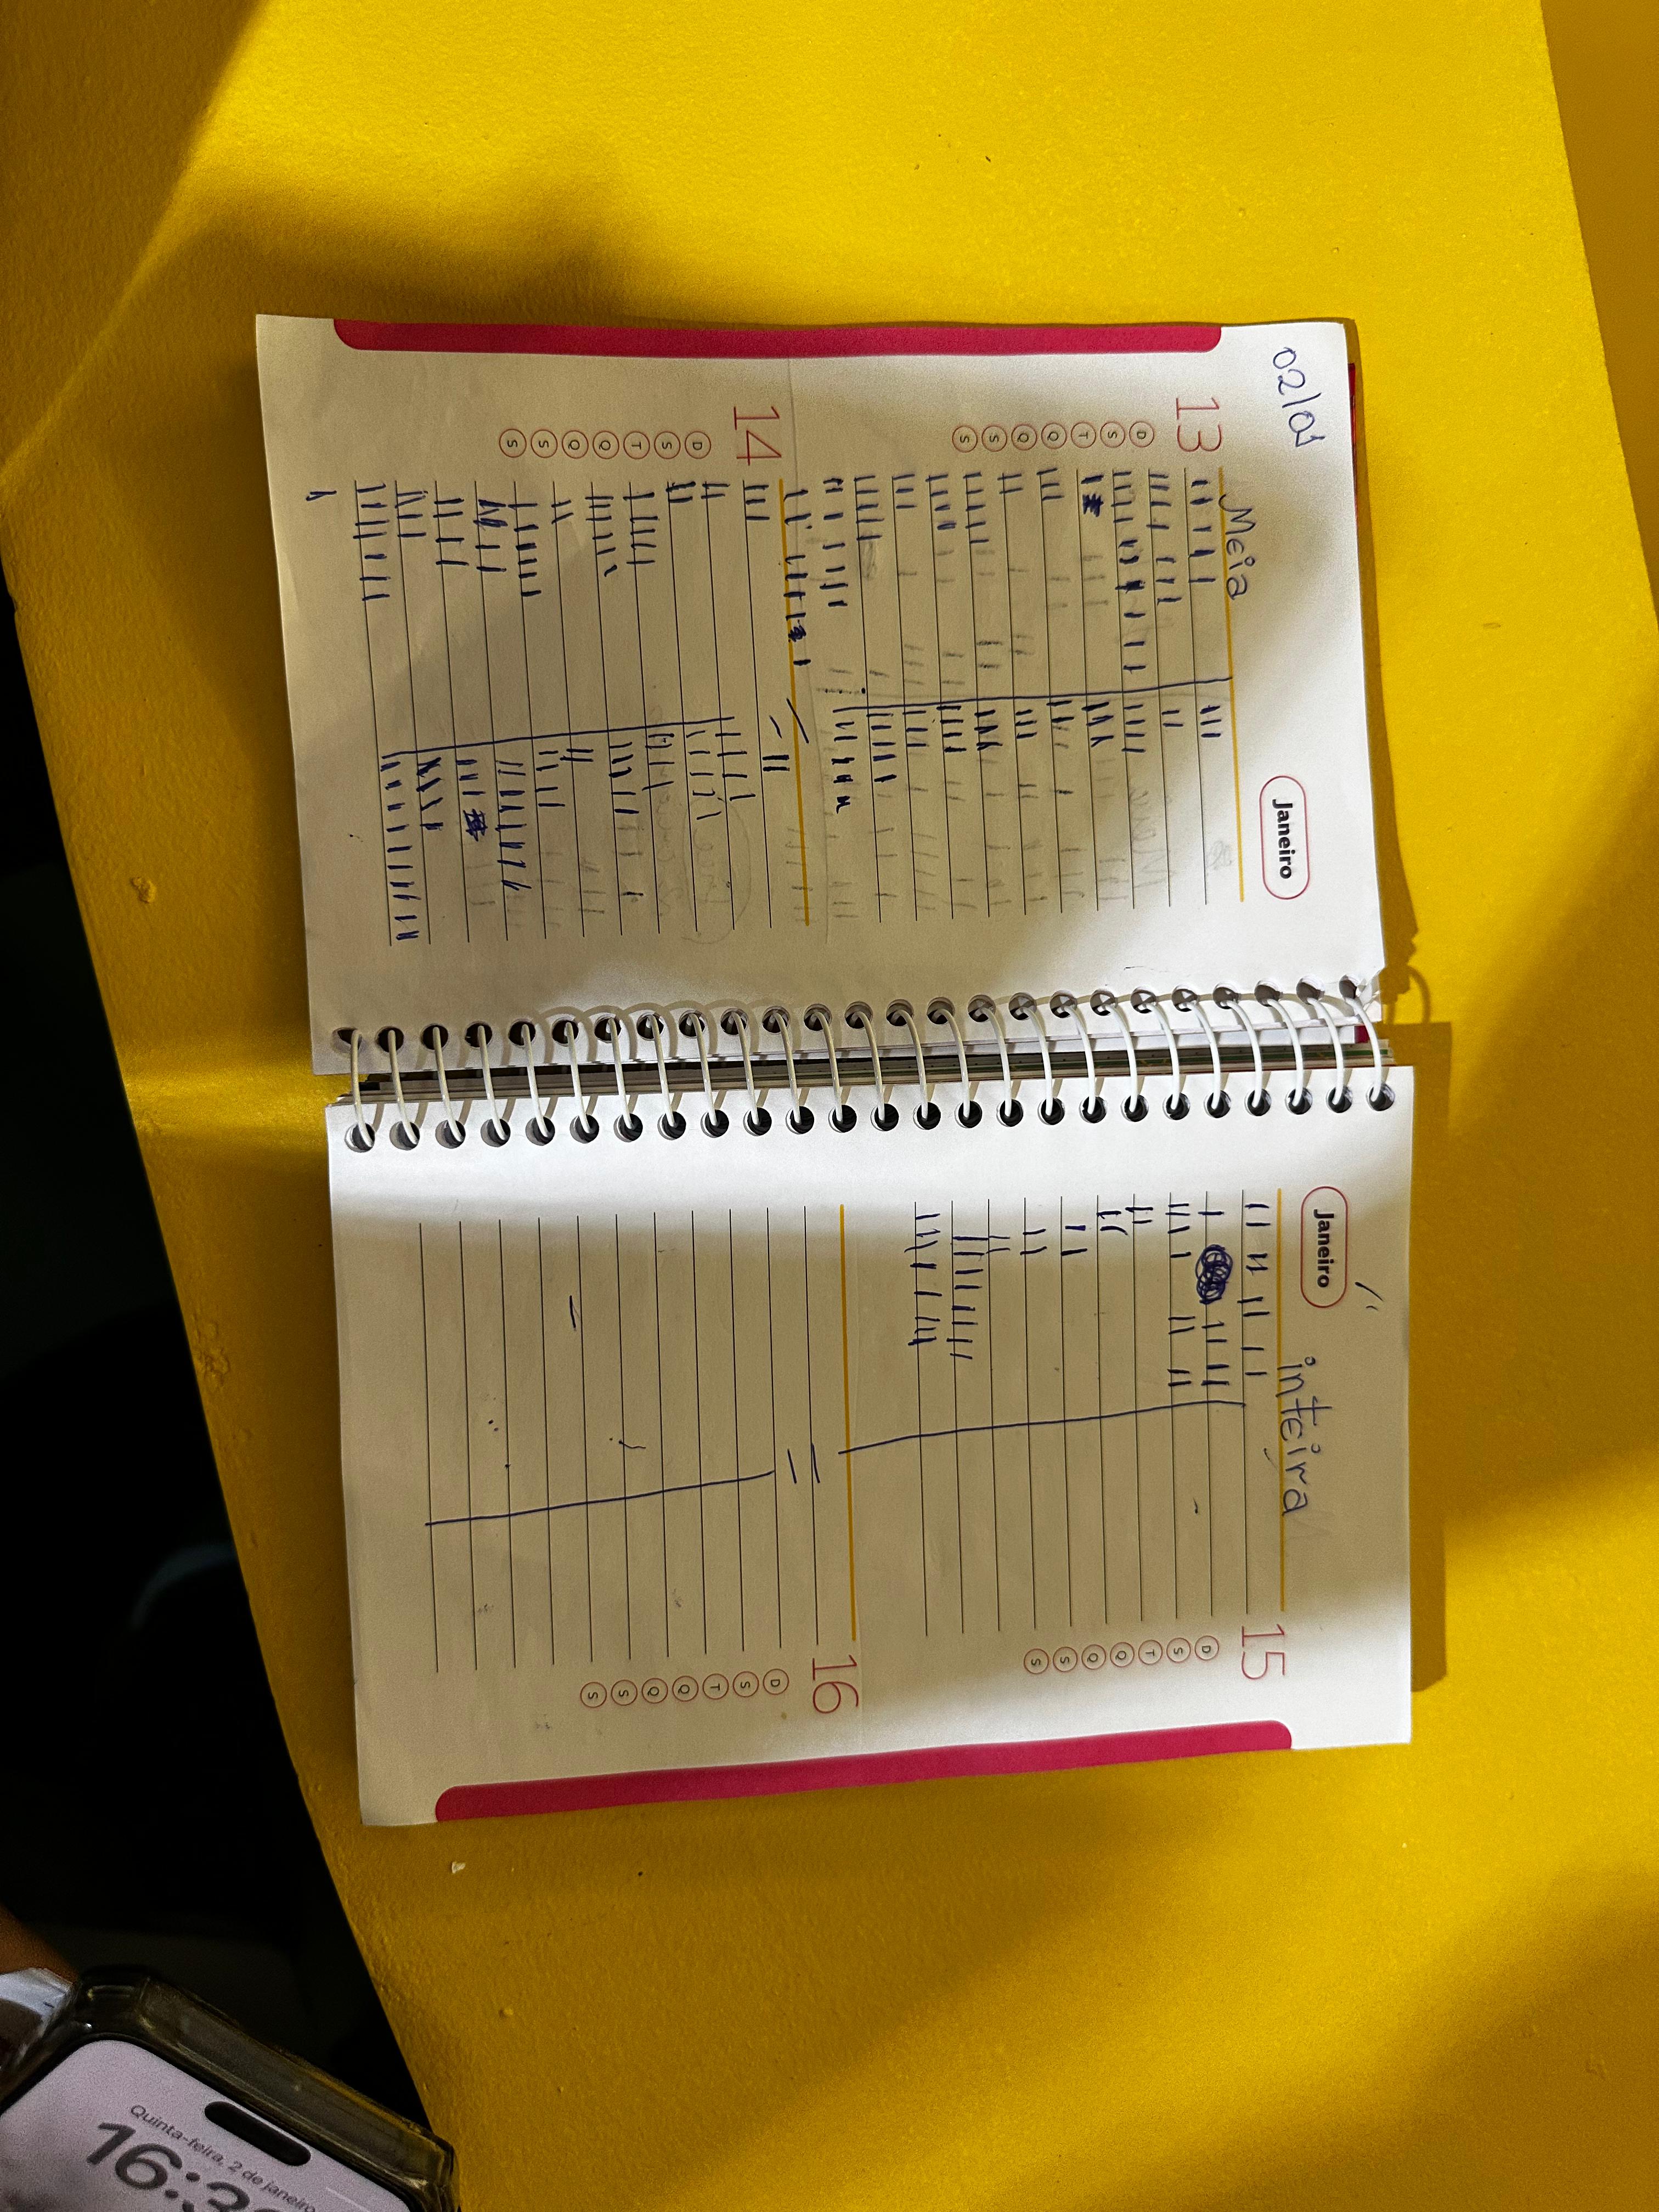 02/01
Janeiro
13
Meia
D
S
T
Q
Q
S
S
14
D
S
T
Q
Q
S
S
Janeiro
inteira
15
D
S
T
Q
Q
S
S
16
D
S
T
Q
Q
S
S
Quinta-feira, 2 de janeiro